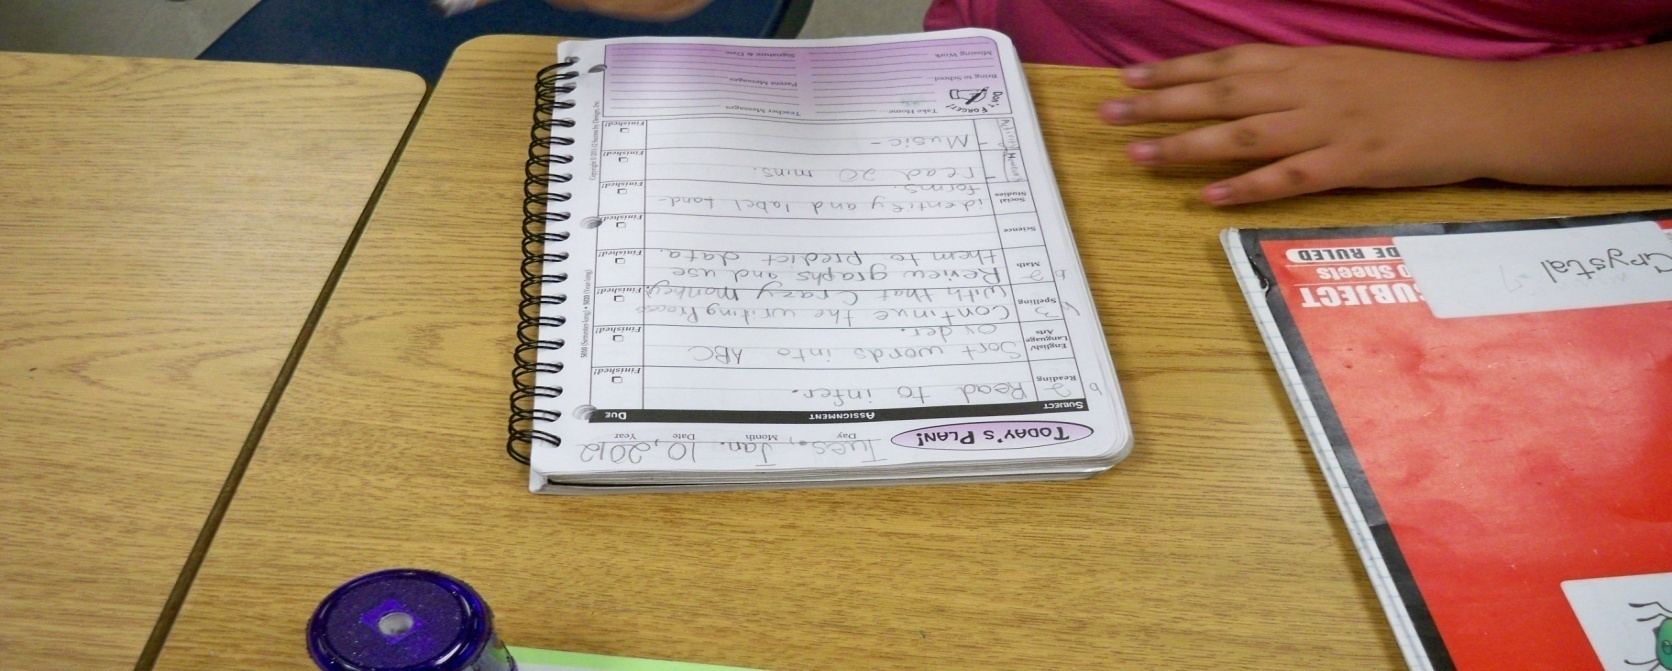 TODAY'S PLAN!
Tues., Jan. 10, 2012
Day Month Date Year
SUBJECT ASSIGNMENT DUE
Reading Read to infer. Finished!
English/ Language Arts Sort words into ABC
order. Finished!
Spelling Continue the writing Process
with that Crazy Monkey! Finished!
Math Review graphs and use
them to predict data. Finished!
Science Finished!
Social Studies identify and label Land-
forms. Finished!
- read 20 mins. Finished!
- Music - Finished!
DON'T FORGET!
Take Home Teacher Messages
Bring to School Parent Messages
Missing Work Signature & Date
Crystal
SUBJECT
Sheets
DE RULED